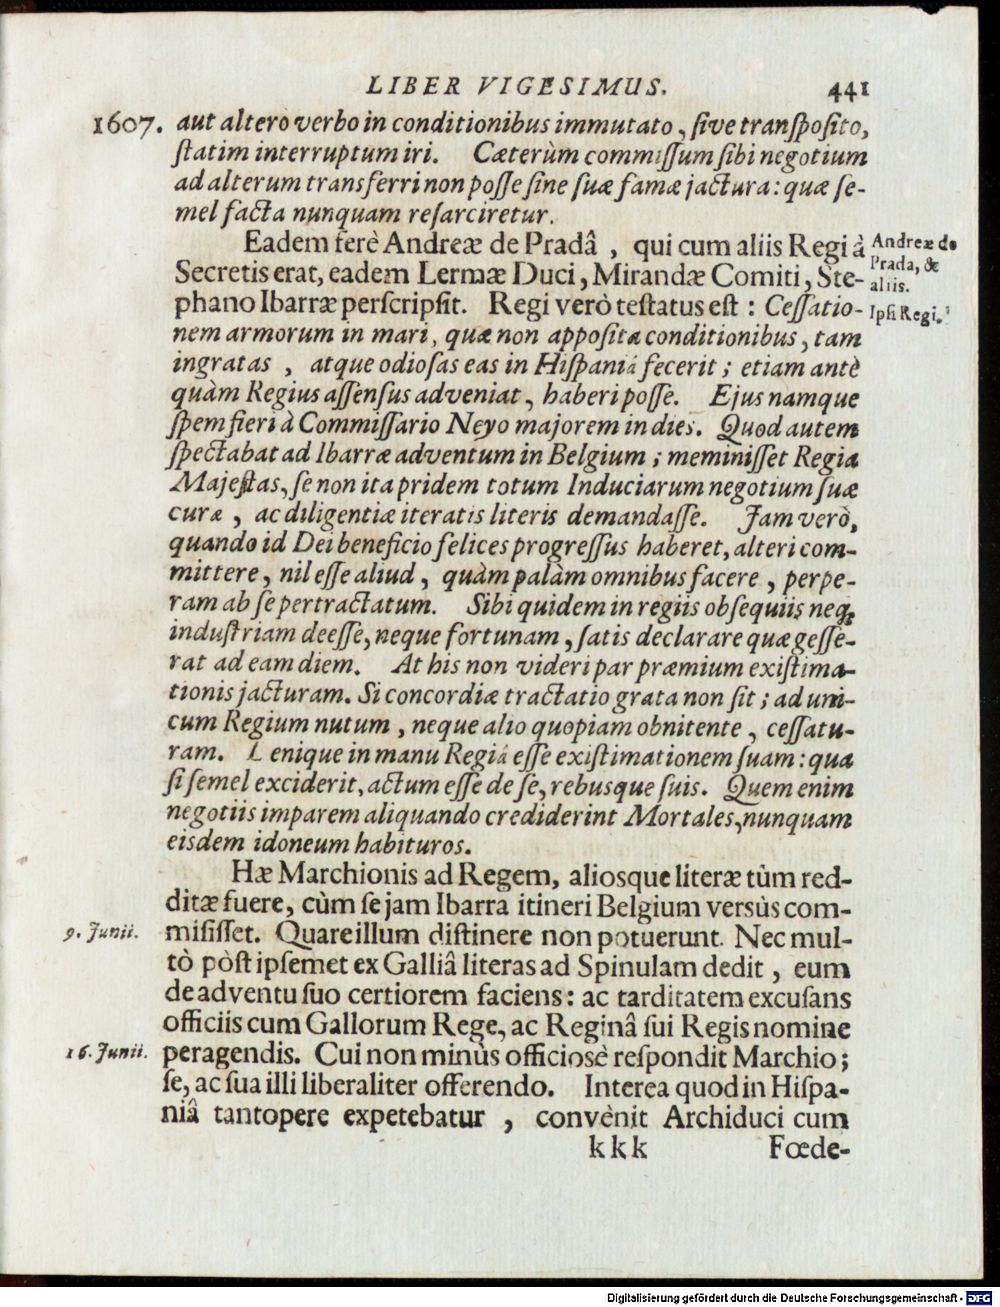 LIBER VIGESIMUS. 441
1607. aut altero verbo in conditionibus immutato, ſive tranſpoſito,
ſtatim interruptum iri. Cæterùm commiſſum ſibi negotium
ad alterum transferri non poſſe ſine ſuæ famæ jactura: quæ ſe-
mel facta nunquam reſarciretur.
Eadem ferè Andreæ de Pradâ, qui cum aliis Regi à
Andreæ de
Prada, &
aliis.
Secretis erat, eadem Lermæ Duci, Mirandæ Comiti, Ste-
phano Ibarræ perſcripſit. Regi verò teſtatus eſt: Ceſſatio-
Ipſi Regi.
nem armorum in mari, quæ non appoſita conditionibus, tam
ingratas, atque odioſas eas in Hiſpaniâ fecerit; etiam antè
quàm Regius aſſenſus adveniat, haberi poſſe. Ejus namque
ſpem fieri à Commiſſario Neyo majorem in dies. Quod autem
ſpectabat ad Ibarræ adventum in Belgium; meminiſſet Regia
Majeſtas, ſe non ita pridem totum Induciarum negotium ſuæ
curæ, ac diligentiæ iteratis literis demandaſſe. Jam verò,
quando id Dei beneficio felices progreſſus haberet, alteri com-
mittere, nil eſſe aliud, quàm palàm omnibus facere, perpe-
ram ab ſe pertractatum. Sibi quidem in regiis obſequiis neq;
induſtriam deeſſe, neque fortunam, ſatis declarare quæ geſſe-
rat ad eam diem. At his non videri par præmium exiſtima-
tionis jacturam. Si concordiæ tractatio grata non ſit; ad uni-
cum Regium nutum, neque alio quopiam obnitente, ceſſatu-
ram. Denique in manu Regiâ eſſe exiſtimationem ſuam: qua
ſi ſemel exciderit, actum eſſe de ſe, rebusque ſuis. Quem enim
negotiis imparem aliquando crediderint Mortales, nunquam
eisdem idoneum habituros.
Hæ Marchionis ad Regem, aliosque literæ tùm red-
ditæ fuere, cùm ſe jam Ibarra itineri Belgium versùs com-
9. Junii. miſiſſet. Quare illum diſtinere non potuerunt. Nec mul-
tò pòſt ipſemet ex Galliâ literas ad Spinulam dedit, eum
de adventu ſuo certiorem faciens: ac tarditatem excuſans
officiis cum Gallorum Rege, ac Reginâ ſui Regis nomine
16. Junii. peragendis. Cui non minùs officiosè reſpondit Marchio;
ſe, ac ſua illi liberaliter offerendo. Interea quod in Hiſpa-
niâ tantopere expetebatur, convènit Archiduci cum
kkk Fœde-
Digitalisierung gefördert durch die Deutsche Forschungsgemeinschaft - DFG